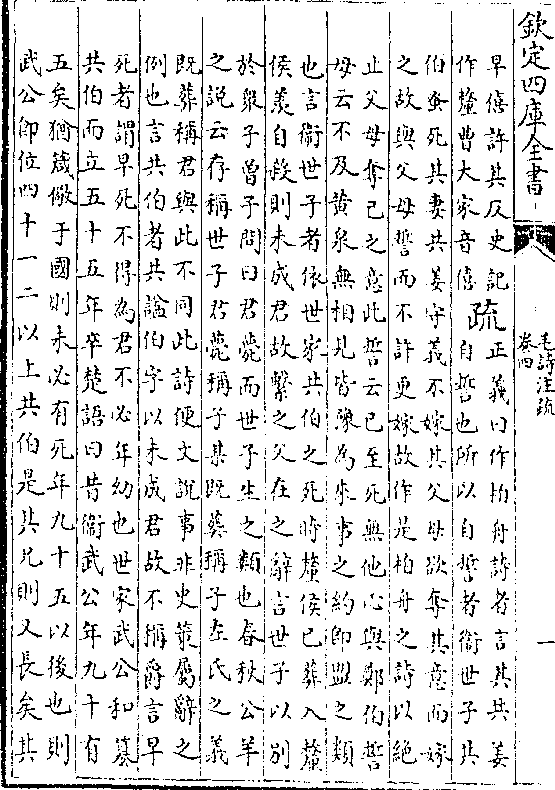 欽定四庫全書
毛詩注疏
卷四
一
早僖許其反史記
作釐曹大家音僖
疏
正義曰作柏舟詩者言其共姜
自誓也所以自誓者衛世子共
伯蚤死其妻共姜守義不嫁其父母欲奪其意而嫁
之故與父母誓而不許更嫁故作是柏舟之詩以絶
止父母奪己之意此誓云己至死無他心與鄭伯誓
母云不及黄泉無相見皆豫為來事之約即盟之類
也言衛世子者依世家共伯之死時釐侯已葬入釐
侯羨自殺則未成君故繫之父在之辭言世子以别
於衆子曾子問曰君薨而世子生之類也春秋公羊
之説云存稱世子君薨稱子某既葬稱子左氏之義
既葬稱君與此不同此詩便文説事非史策屬辭之
例也言共伯者共諡伯字以未成君故不稱爵言早
死者謂早死不得為君不必年幼也世家武公和簒
共伯而立五十五年卒楚語曰昔衛武公年九十有
五矣猶箴儆于國則未必有死年九十五以後也則
武公即位四十一二以上共伯是其兄則又長矣其